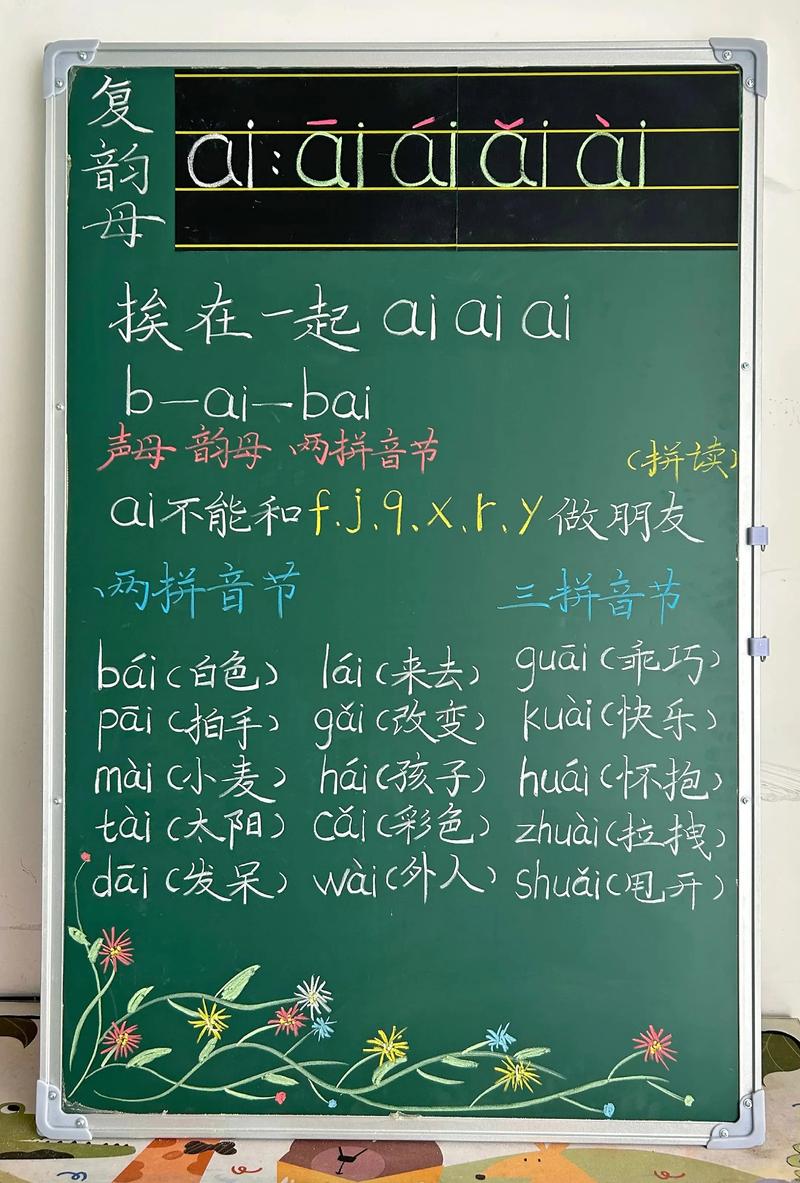 复韵母
ai: āi ái ǎi ài
挨在一起 ai ai ai
b—ai—bai
声母 韵母 两拼音节 (拼读)
ai不能和f、j、q、x、r、y做朋友
两拼音节 三拼音节
bái(白色) lái(来去) guāi(乖巧)
pāi(拍手) gǎi(改变) kuài(快乐)
mài(小麦) hái(孩子) huái(怀抱)
tài(太阳) cǎi(彩色) zhuài(拉拽)
dāi(发呆) wài(外人) shuǎi(甩开)